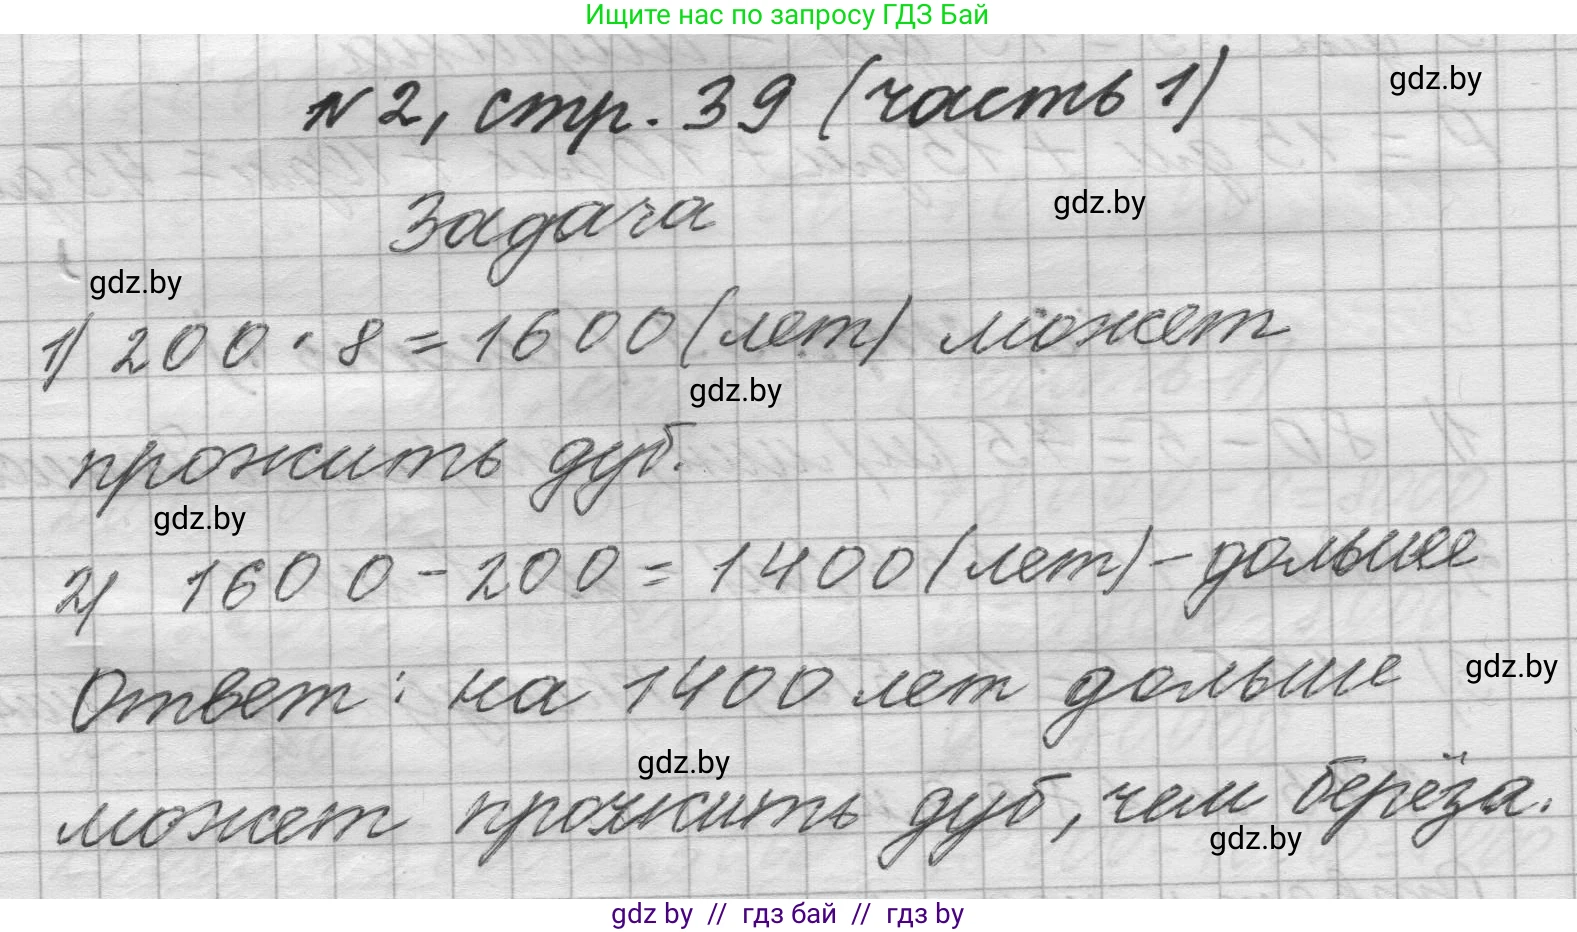 Ищите нас по запросу ГДЗ Бай
№2, стр. 39 (часть 1)
gdz.by
Задача
gdz.by
gdz.by
1) 200 · 8 = 1600 (лет) может
gdz.by
прожить дуб.
gdz.by
2) 1600 - 200 = 1400 (лет) - дольше
Ответ: на 1400 лет дольше
gdz.by
gdz.by
может прожить дуб, чем берёза.
gdz.by
gdz by // гдз бай // гдз by